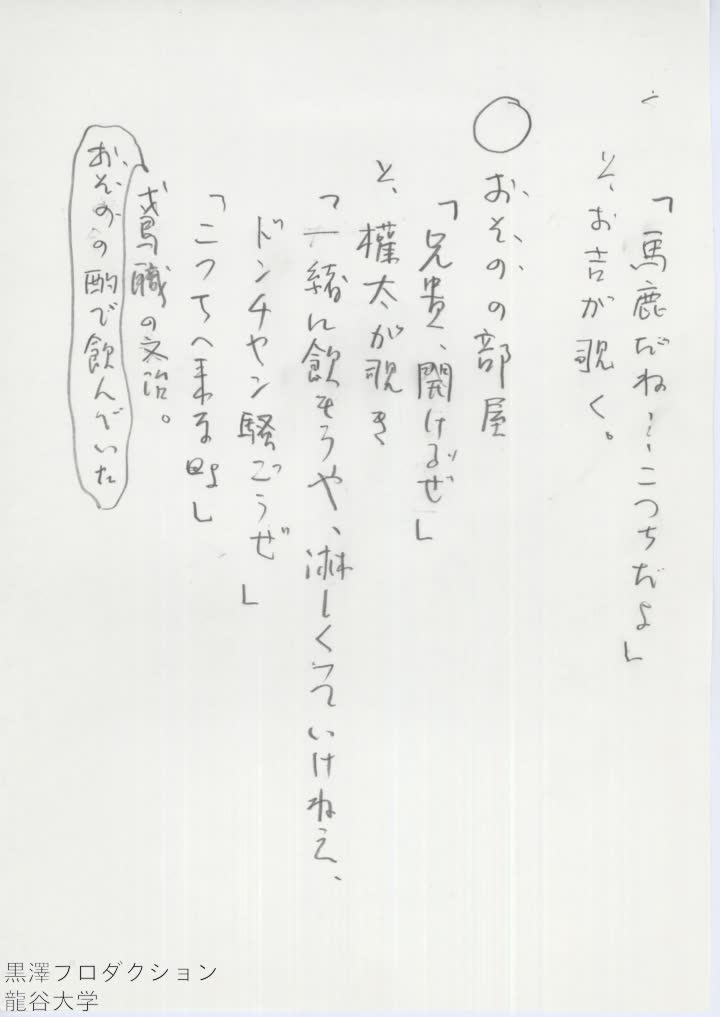 「馬鹿だね…こつちだよ」
と、お吉が覗く。
○おそのの部屋
「兄貴、開けるぜ」
と、権太が覗き
「一緒に飲もうや、淋しくっていけねえ、
ドンチャン騒ごうぜ」
「こつちへ来な
鳶職の文治。
おそのの酌で飲んでいた
黒澤プロダクション
龍谷大学